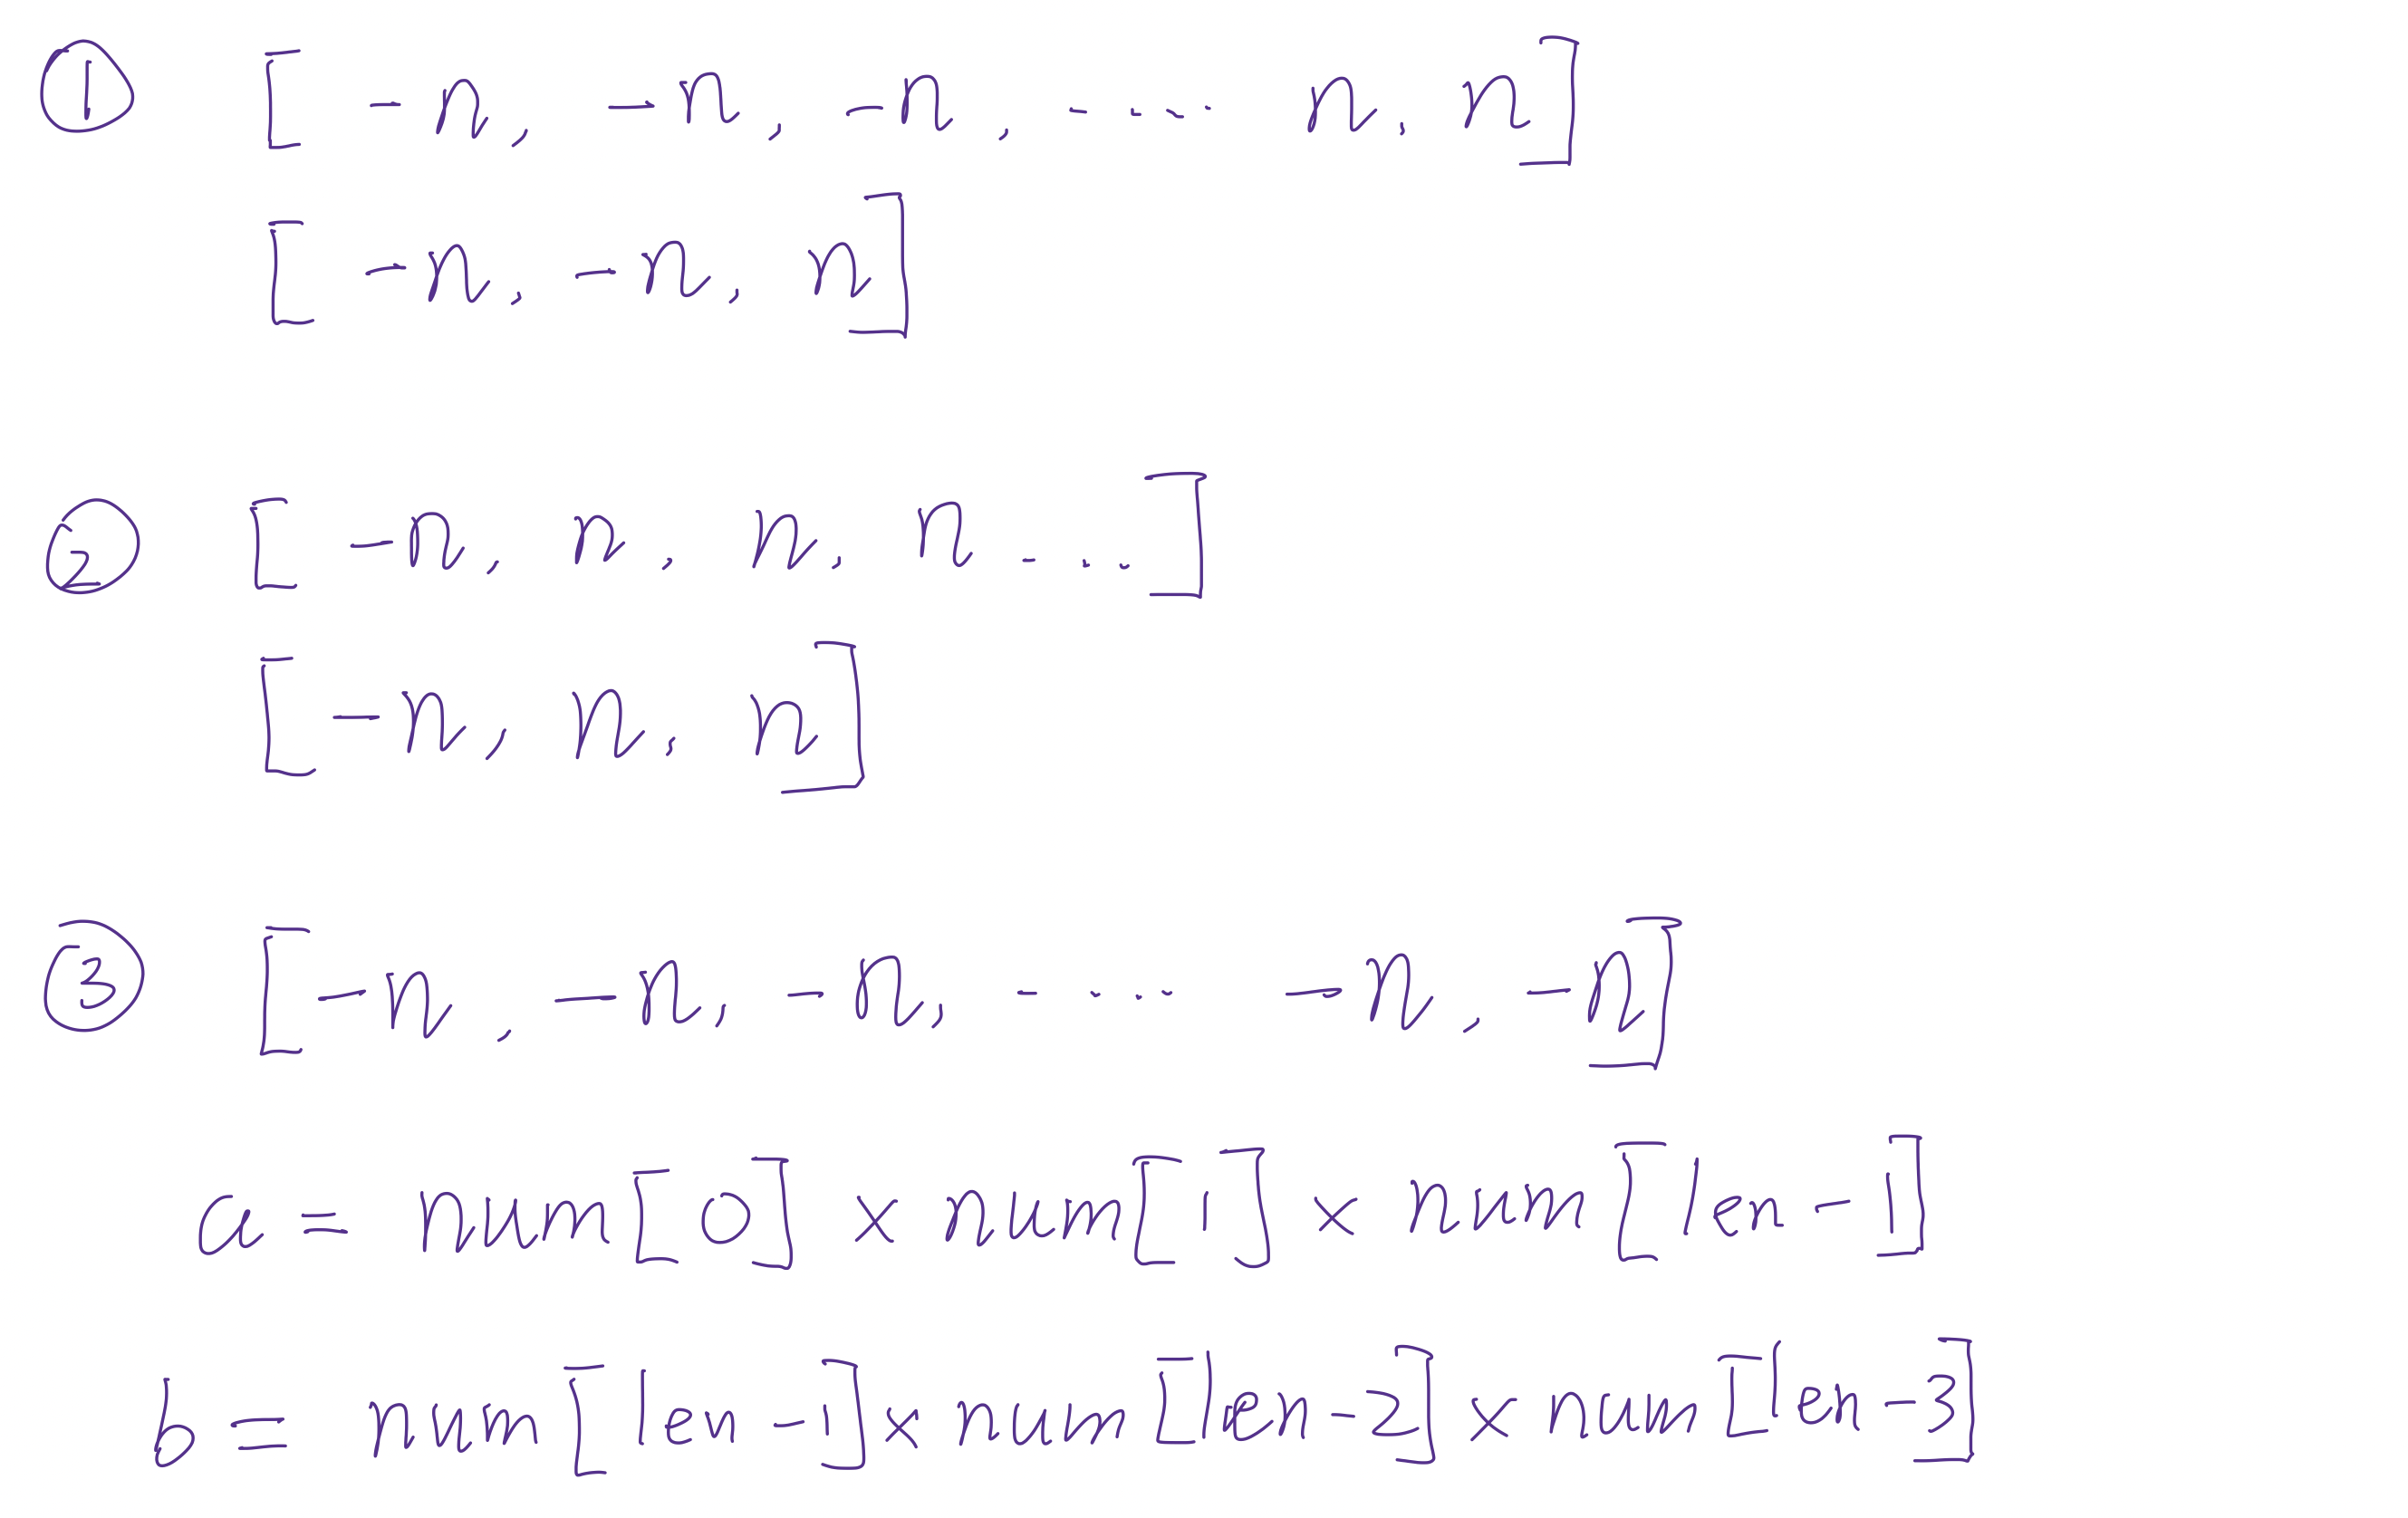 ① [ -n, -n, -n, .... n, n]
[ -n, -n, n]
② [ -n, n, n, n ....]
[ -n, n, n]
③ [-n, -n, -n, .... -n, -n]
a = num[0] × num[1] × num[len-1]
b = num[len-1] × num[len-2] × num[len-3]